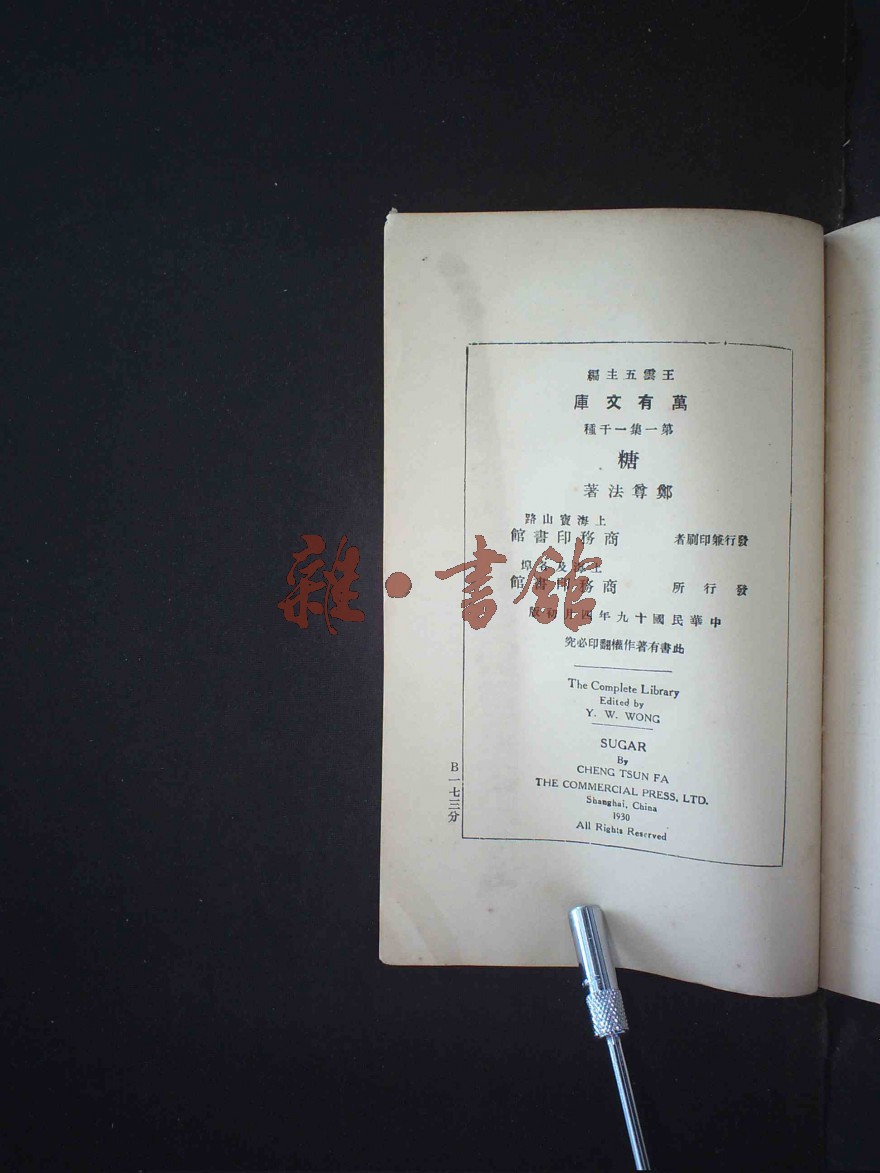 王雲五主編
萬有文庫
第一集一千種
糖
鄭尊法著
上海寶山路
發行兼印刷者 商務印書館
上海及各埠
發行所 商務印書館
中華民國十九年四月初版
此書有著作權翻印必究
The Complete Library
Edited by
Y. W. WONG
SUGAR
By
CHENG TSUN FA
THE COMMERCIAL PRESS, LTD.
Shanghai, China
1930
All Rights Reserved
B一七三分
雜·書館